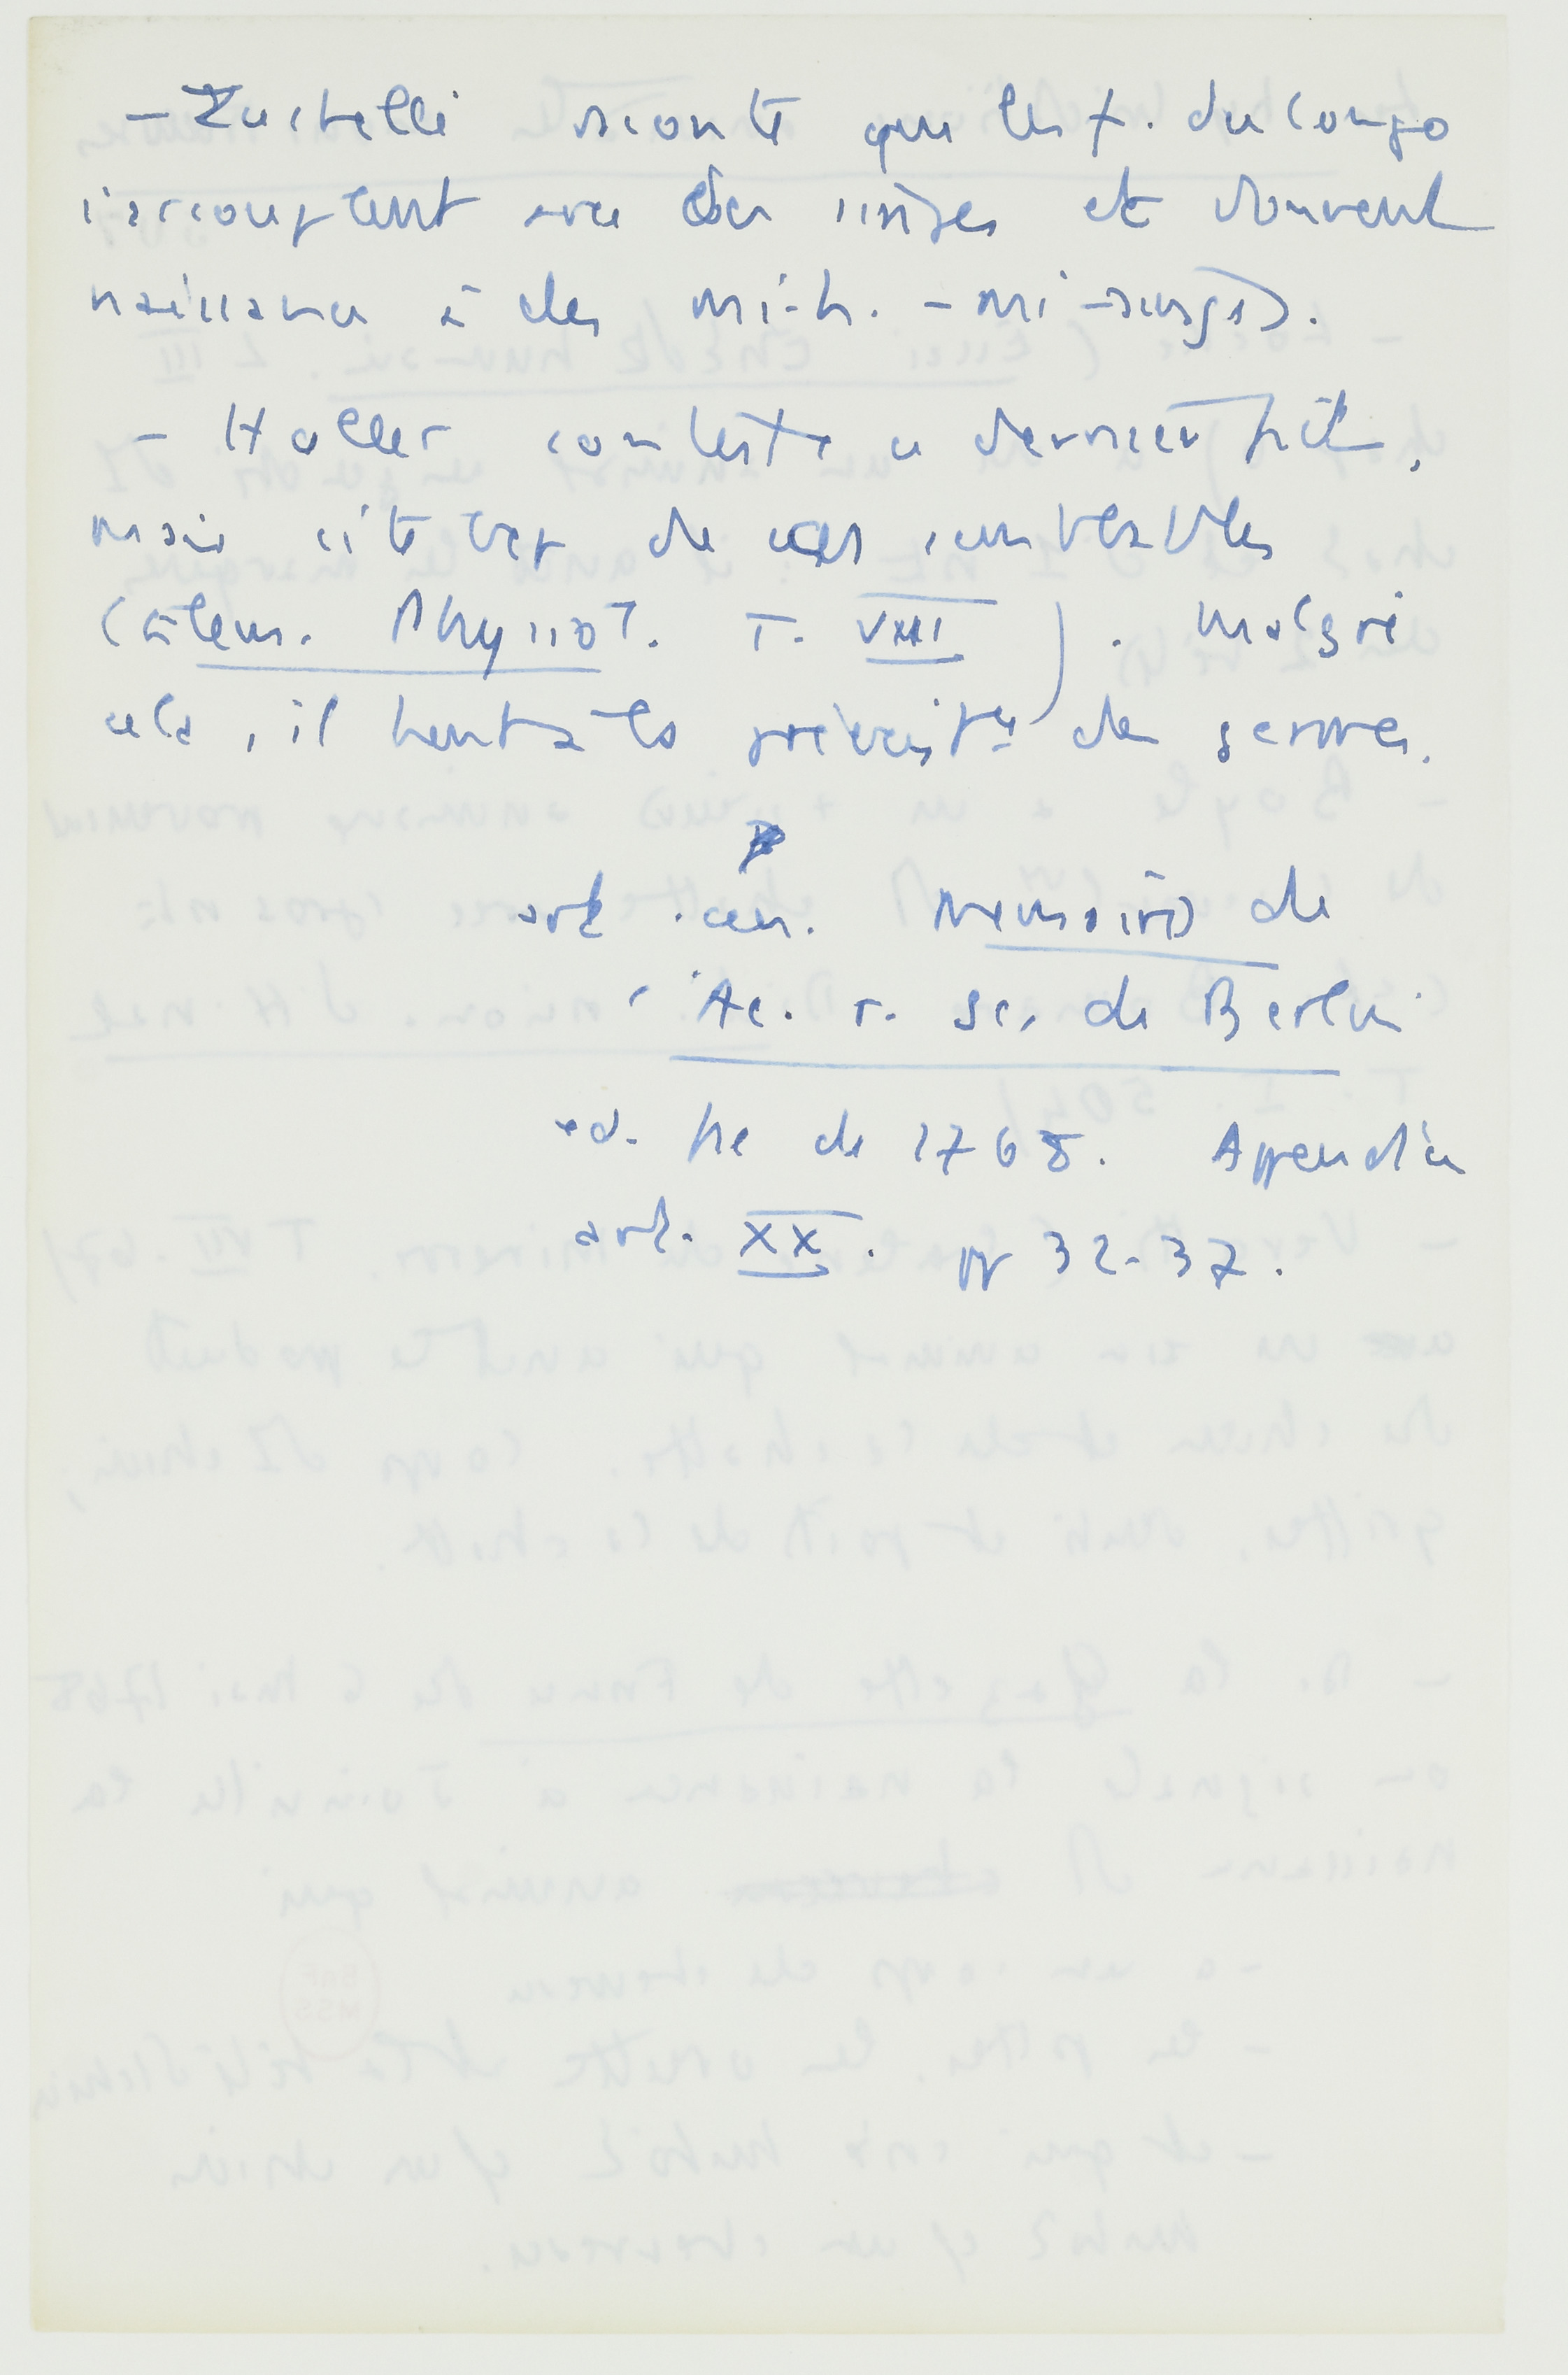 - Zuchelli raconte que les f. du Congo
s'accouplent avec des singes et donnent
naissance à des mi-h. - mi-singes.
- Haller conteste ce dernier fait,
mais cite bcp de cas semblables
(Elem. Physiol. T. VIII). Malgré
cela, il soutient la préexist. des germes.
art. Mémoires de
l'Ac. r. Sc. de Berlin
ed. de 1768. Appendice
art. XX. pp 32-37.